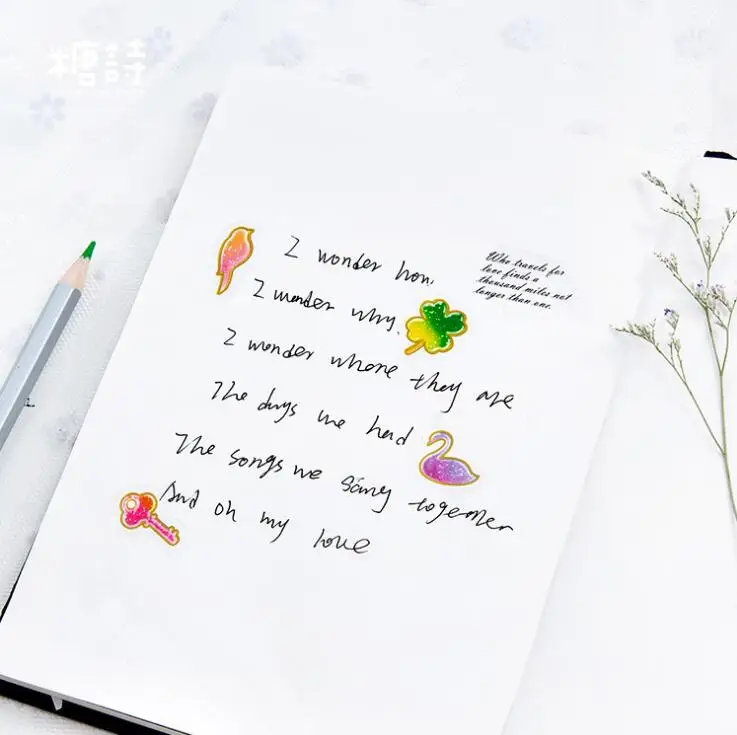 糖詩
I wonder how.
I wonder why.
I wonder where they are
The days we had
The songs we sang together
And oh my love
Who travels for
love finds a
thousand miles not
longer than one.